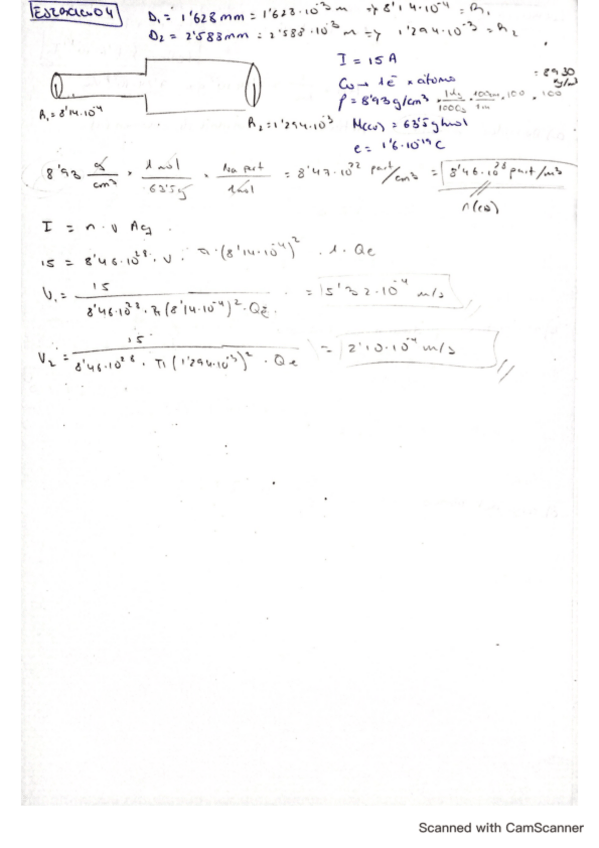 Ejercicio 04
D₁ = 1'628 mm = 1'628·10⁻³ m => 8'14·10⁻⁴ = R₁
D₂ = 2'588 mm = 2'588·10⁻³ m => 1'294·10⁻³ = R₂
I = 15 A
Cu → 1 e⁻ × átomo
ρ = 8'93 g/cm³ · 1kg/1000g · 100cm/1m · 100 · 100 = 8930 kg/m³
R₁ = 8'14·10⁻⁴
R₂ = 1'294·10⁻³
M(Cu) = 63'5 g/mol
e = 1'6·10⁻¹⁹ C
8'93 g/cm³ × 1 mol/63'5 g × Na part/1 mol = 8'47·10²² part/cm³ = 8'46·10²⁸ part/m³
n(Cu)
I = n · v A q
15 = 8'46·10²⁸ · v · π · (8'14·10⁻⁴)² · 1 · Qe
V₁ = 15 / 8'46·10²⁸ · π (8'14·10⁻⁴)² · Qe = 5'32·10⁻⁴ m/s
V₂ = 15 / 8'46·10²⁸ · π (1'294·10⁻³)² · Qe = 2'10·10⁻⁴ m/s
Scanned with CamScanner